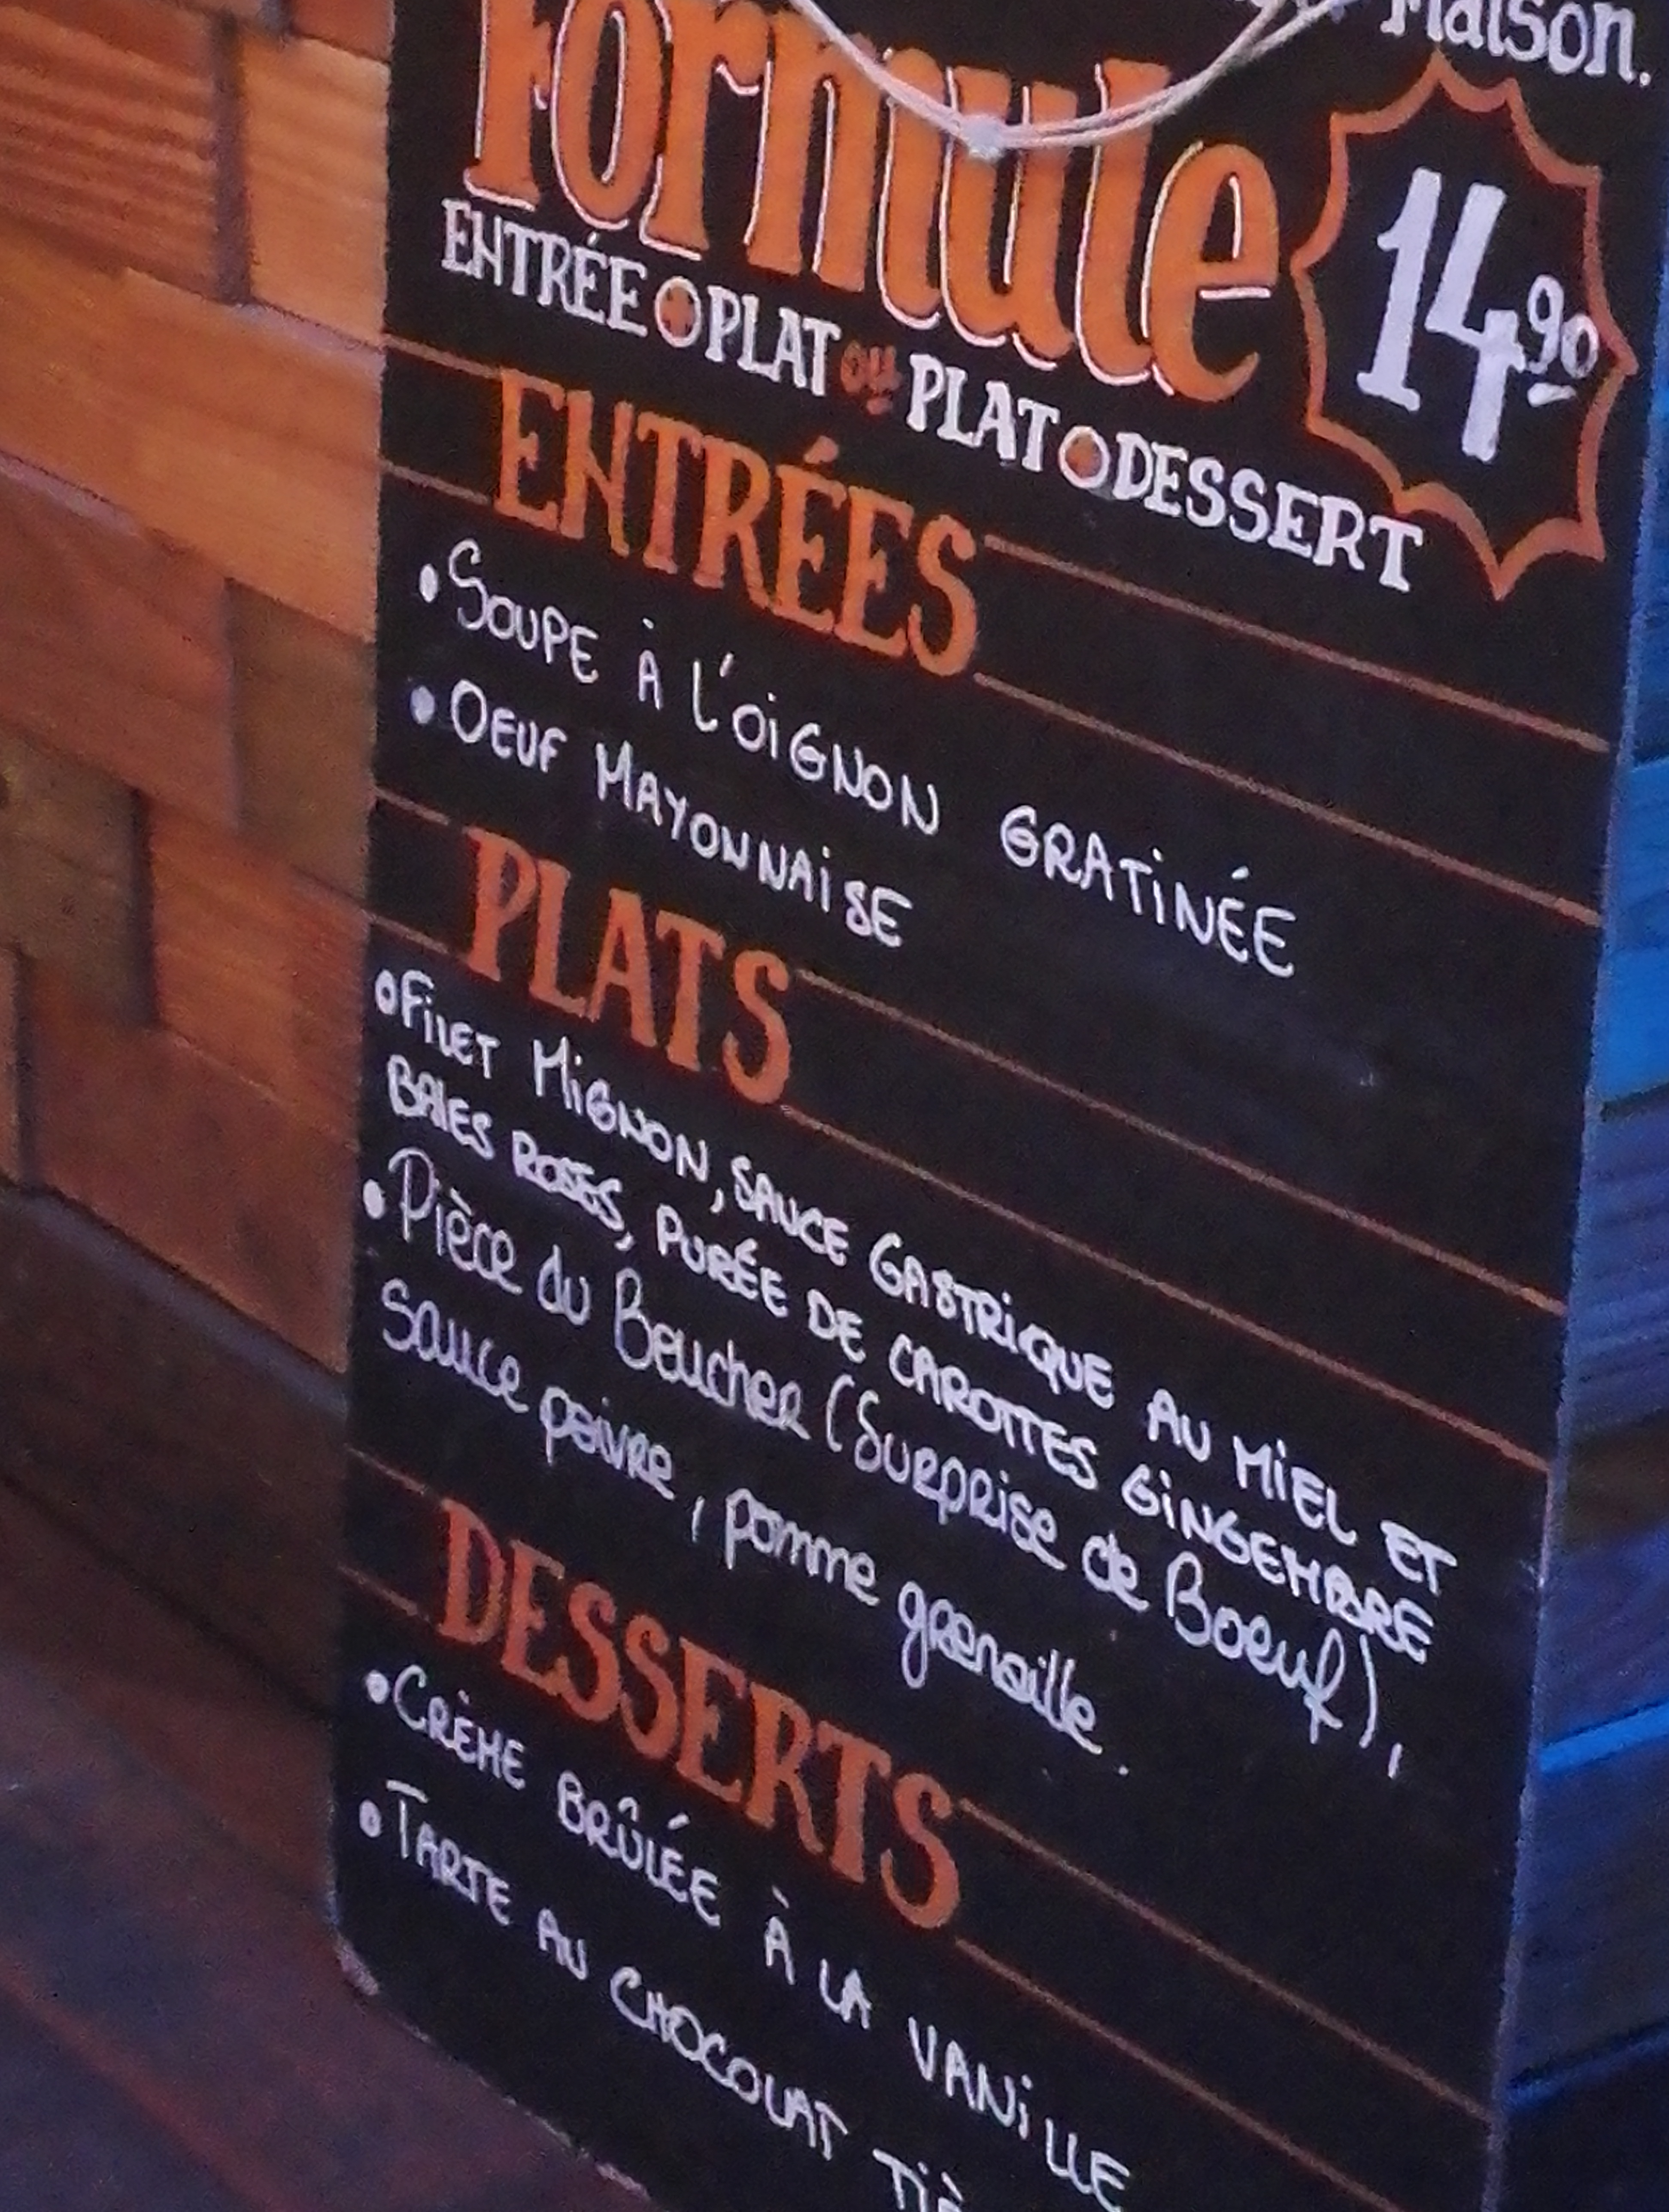 Maison.
Formule
14.90
ENTRÉE PLAT ou PLAT DESSERT
ENTRÉES
• SOUPE À L'OiGNON GRATiNÉE
• OEUF MAYONNAiSE
PLATS
• FiLET MiGNON, SAUCE GASTRiQUE AU MiEL ET
BAIES ROSES, PURÉE DE CAROTTES GiNGEMBRE
• Pièce du Boucher (Surprise de Boeuf),
sauce poivre, pomme grenaille.
DESSERTS
• CRÈME BRÛLÉE À LA VANiLLE
• TARTE AU CHOCOLAT TiÈ